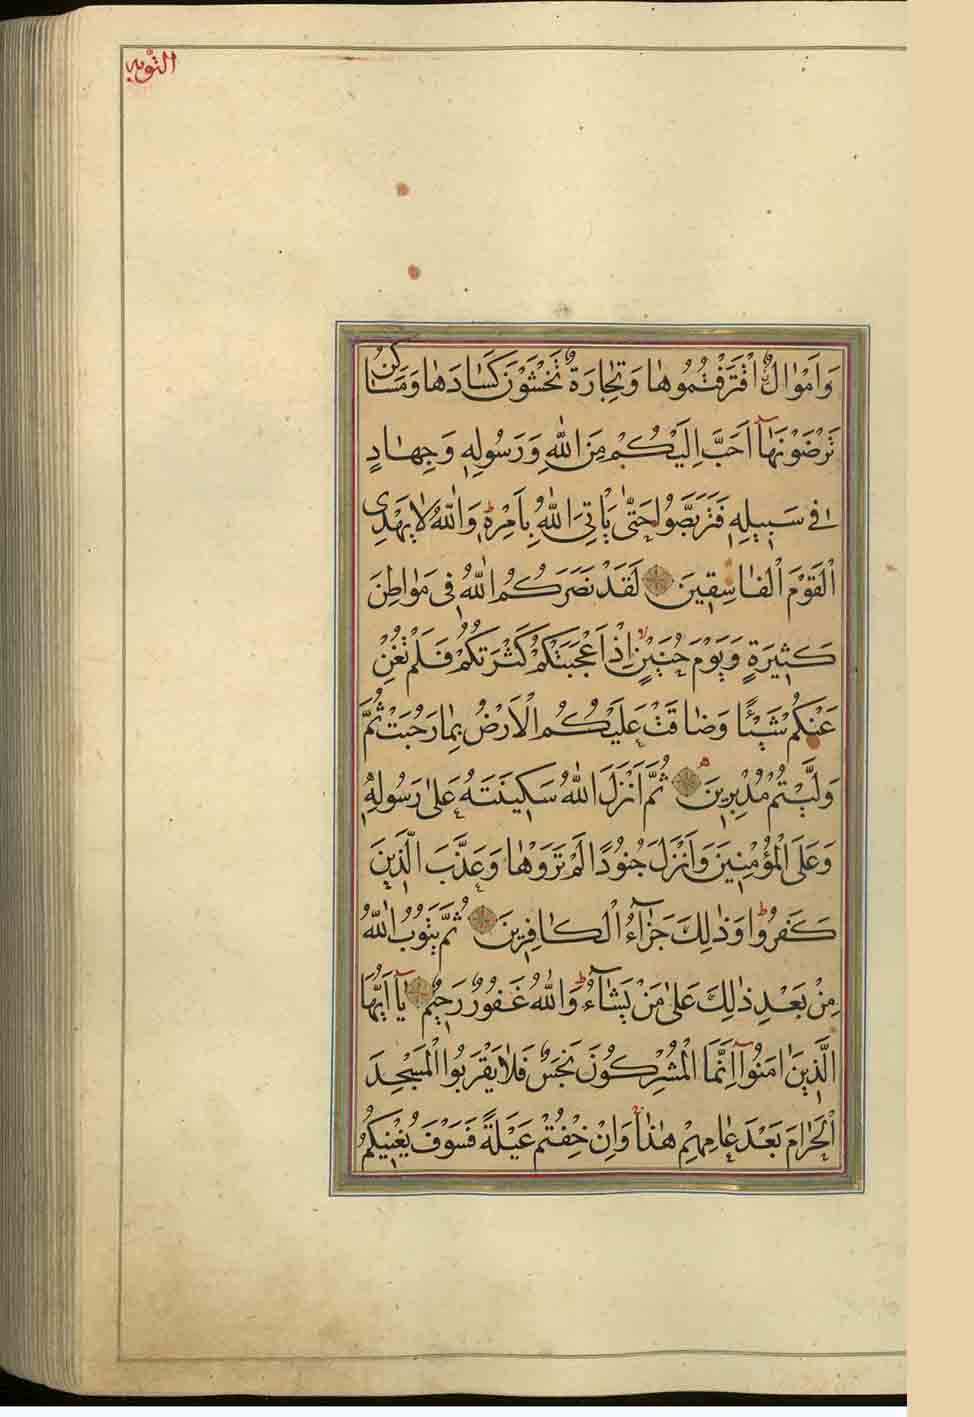 التوبه
وَاَمْوَالٌ اقْتَرَفْتُمُوهَا وَتِجَارَةٌ تَخْشَوْنَ كَسَادَهَا وَمَسَاكِنُ
تَرْضَوْنَهَآ اَحَبَّ اِلَيْكُمْ مِنَ اللّٰهِ وَرَسُولِهٖ وَجِهَادٍ
فِى سَبِيلِهٖ فَتَرَبَّصُوا حَتّٰى يَاْتِىَ اللّٰهُ بِاَمْرِهٖ وَاللّٰهُ لَا يَهْدِى
الْقَوْمَ الْفَاسِقِينَ لَقَدْ نَصَرَكُمُ اللّٰهُ فِى مَوَاطِنَ
كَثِيرَةٍ وَيَوْمَ حُنَيْنٍ اِذْ اَعْجَبَتْكُمْ كَثْرَتُكُمْ فَلَمْ تُغْنِ
عَنْكُمْ شَيْئًا وَضَاقَتْ عَلَيْكُمُ الْاَرْضُ بِمَا رَحُبَتْ ثُمَّ
وَلَّيْتُمْ مُدْبِرِينَ ثُمَّ اَنْزَلَ اللّٰهُ سَكِينَتَهُ عَلٰى رَسُولِهٖ
وَعَلَى الْمُؤْمِنِينَ وَاَنْزَلَ جُنُودًا لَمْ تَرَوْهَا وَعَذَّبَ الَّذِينَ
كَفَرُوا وَذٰلِكَ جَزَآءُ الْكَافِرِينَ ثُمَّ يَتُوبُ اللّٰهُ
مِنْ بَعْدِ ذٰلِكَ عَلٰى مَنْ يَشَآءُ وَاللّٰهُ غَفُورٌ رَحِيمٌ يَآ اَيُّهَا
الَّذِينَ اٰمَنُوآ اِنَّمَا الْمُشْرِكُونَ نَجَسٌ فَلَا يَقْرَبُوا الْمَسْجِدَ
الْحَرَامَ بَعْدَ عَامِهِمْ هٰذَا وَاِنْ خِفْتُمْ عَيْلَةً فَسَوْفَ يُغْنِيكُمُ